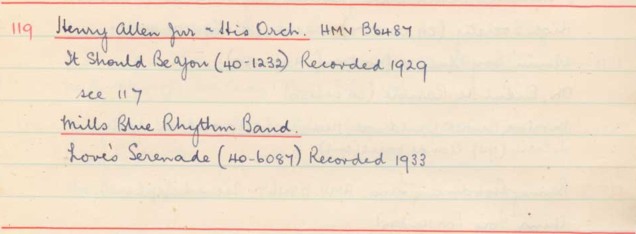 119 Henry Allen Jnr - His Orch. HMV B6487
It Should Be You (40-1232) Recorded 1929
see 117
Mills Blue Rhythm Band.
Love's Serenade (40-6087) Recorded 1933